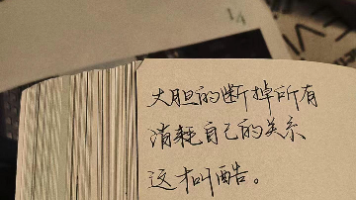 14
大胆的断掉所有
消耗自己的关系
这才叫酷。